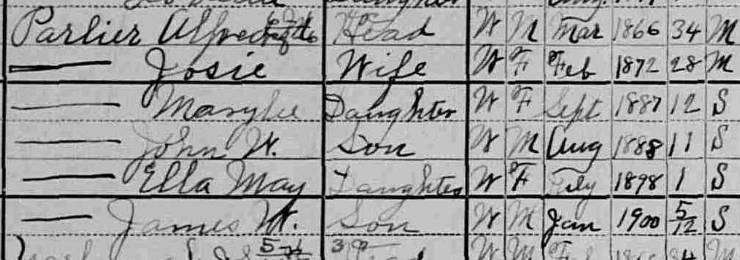 Daughter Aug
Parlier Alfred Head W M Mar 1866 34 M
— Josie Wife W F Feb 1872 28 M
— Daughter W F Sept 1887 12 S
— John W. Son W M Aug 1888 11 S
— Ella May Daughter W F July 1898 1 S
— James W. Son W M Jan 1900 5/12 S
W M